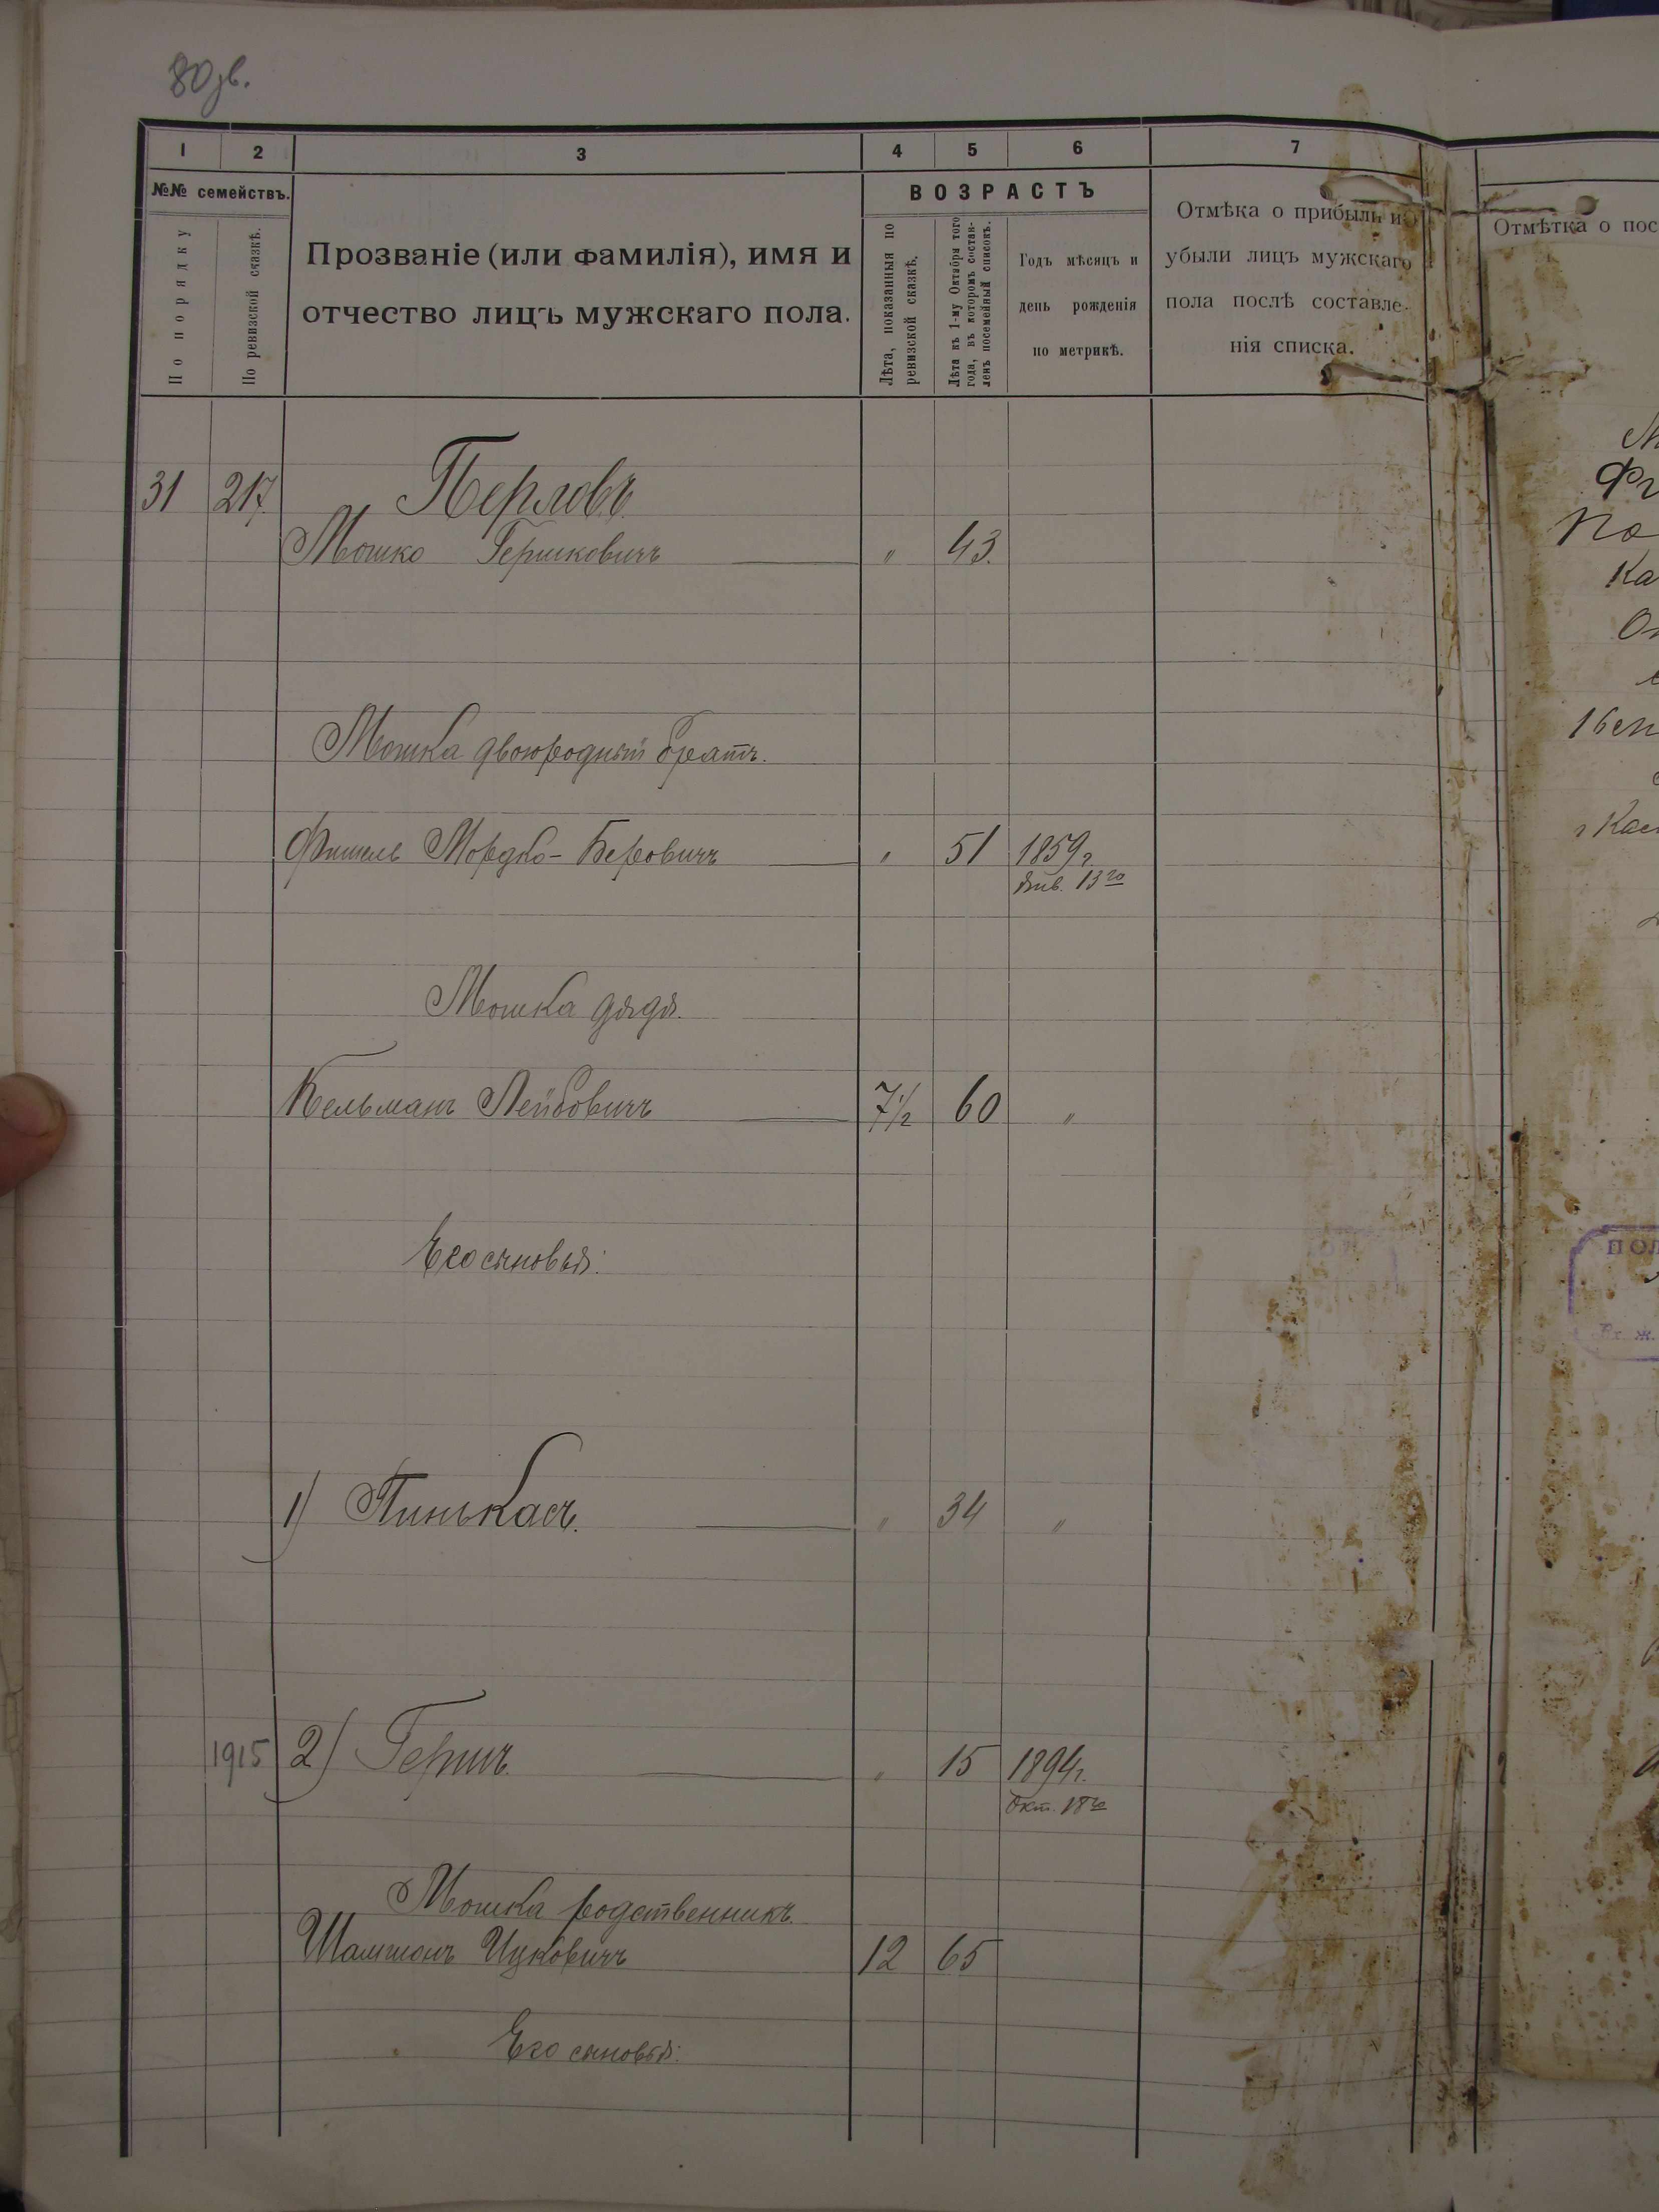 80зв.
1 2 3 4 5 6 7
№№ семействъ.
По порядку
По ревизской сказкѣ.
Прозваніе (или фамилія), имя и
отчество лицъ мужскаго пола.
ВОЗРАСТЪ
Лѣта, показанныя по
ревизской сказкѣ.
Лѣта къ 1-му Октября того
года, въ которомъ состав-
ленъ посемейный списокъ.
Годъ мѣсяцъ и
день рожденія
по метрикѣ.
Отмѣка о прибыли и
убыли лицъ мужскаго
пола послѣ составле-
нія списка.
Отмѣтка о пос
31 217. Перловъ
Мошко Гершковичъ " 43.
Мошка двоюродный братъ.
Фишель Мордко-Беровичъ " 51 1859 г.
Янв. 13го
Мошка дядя.
Кельманъ Лейбовичъ 7½ 60 "
Его сыновья:
1) Пинькасъ. " 34 "
1915 2) Гершъ. " 15 1894 г.
Окт. 18го
Мошка родственникъ.
Шамшонъ Ицковичъ 12 65
Его сыновья: